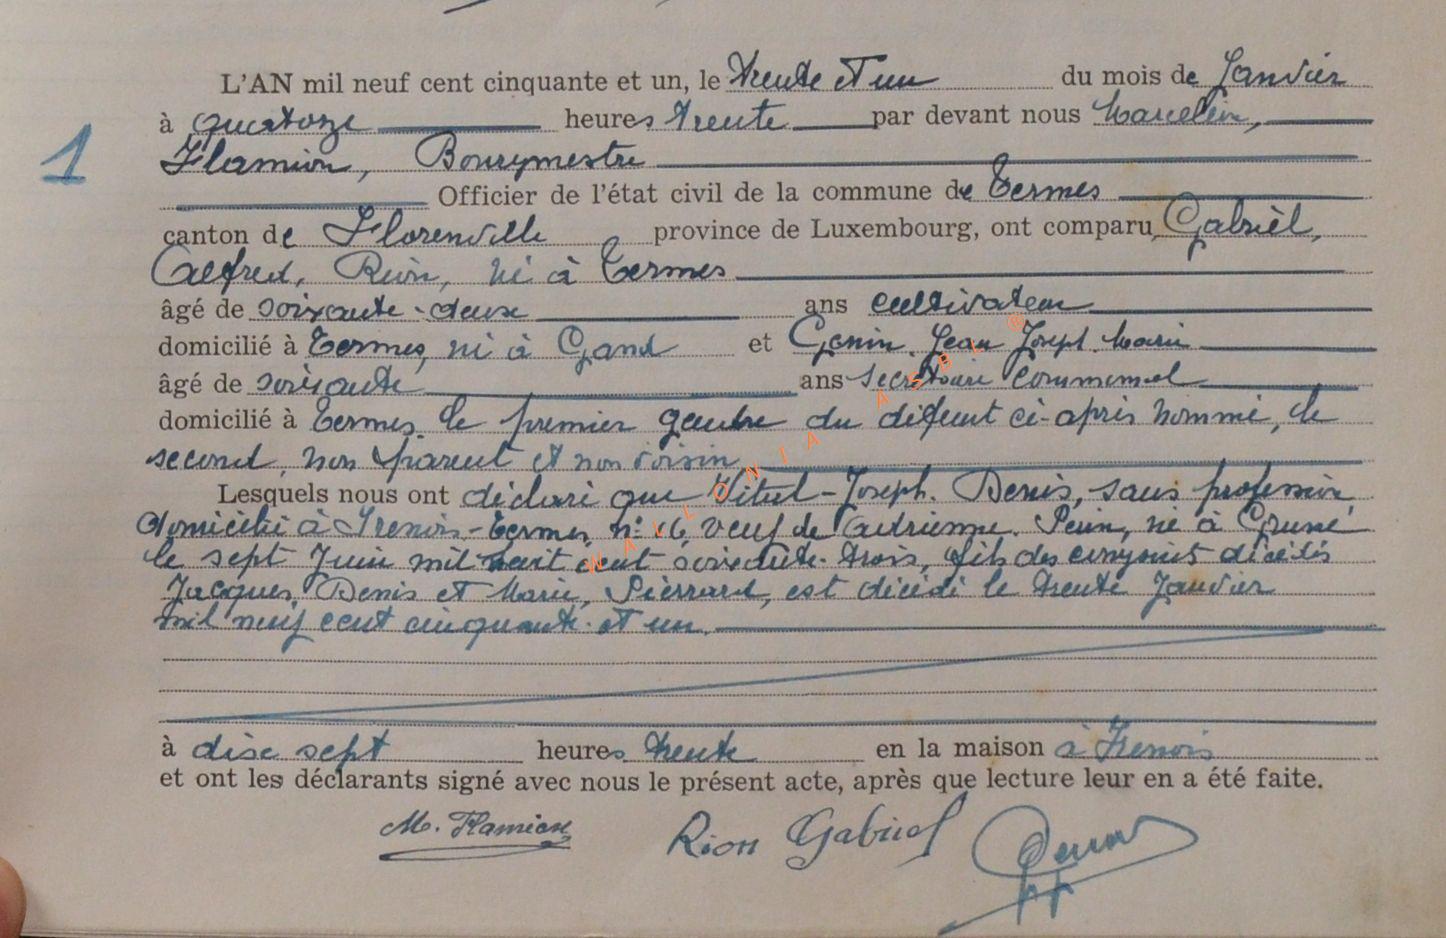 L'AN mil neuf cent cinquante et un, le trente et un du mois de Janvier
à quatorze heures trente par devant nous Marcelin,
1
Flamion, Bourgmestre
Officier de l'état civil de la commune de Termes
canton de Florenville province de Luxembourg, ont comparu, Gabriel,
Alfred, Rion, né à Termes
âgé de soixante-deux ans cultivateur
domicilié à Termes, né à Gand et Genin, Jean Joseph Marie
âgé de soixante ans secrétaire communal
domicilié à Termes. le premier gendre du défunt ci-après nommé, le
second, non parent et non voisin
Lesquels nous ont déclaré que Vital-Joseph. Denis, sans profession
domicilié à Frenois-Termes, n° 16, veuf de Adrienne. né à
le sept Juin mil huit cent soixante-trois, fils des conjoints décédés
Jacques, Denis et Marie, Pierrard, est décédé le trente Janvier
mil neuf cent cinquante-et un.
à dix sept heures trente en la maison à Frenois
et ont les déclarants signé avec nous le présent acte, après que lecture leur en a été faite.
M. Flamion Rion Gabriel
WALLONIA ASBL ®